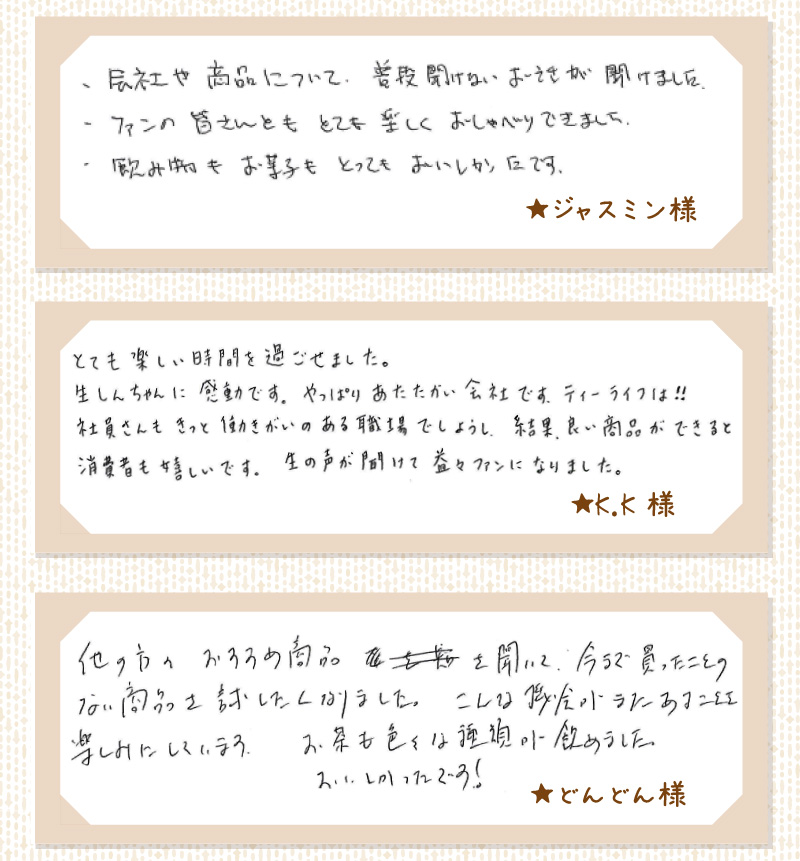 、会社や商品について、普段聞けないおはなしが聞けました。
・ファンの皆さんとも とても楽しく おしゃべりできました。
・飲み物も お菓子も とっても おいしかったです。
★ジャスミン様
とても楽しい時間を過ごせました。
生しんちゃんに感動です。やっぱりあたたかい会社です、ティーライフは!!
社員さんもきっと働きがいのある職場でしょうし、結果、良い商品ができると
消費者も嬉しいです。生の声が聞けて益々ファンになりました。
★K.K 様
他の方の おすすめ商品 を聞いて、今まで買ったことの
ない商品を試したくなりました。こんな機会がまたあることを
楽しみにしています。 お茶も色々な種類が飲めました。
おいしかったです!
★どんどん様